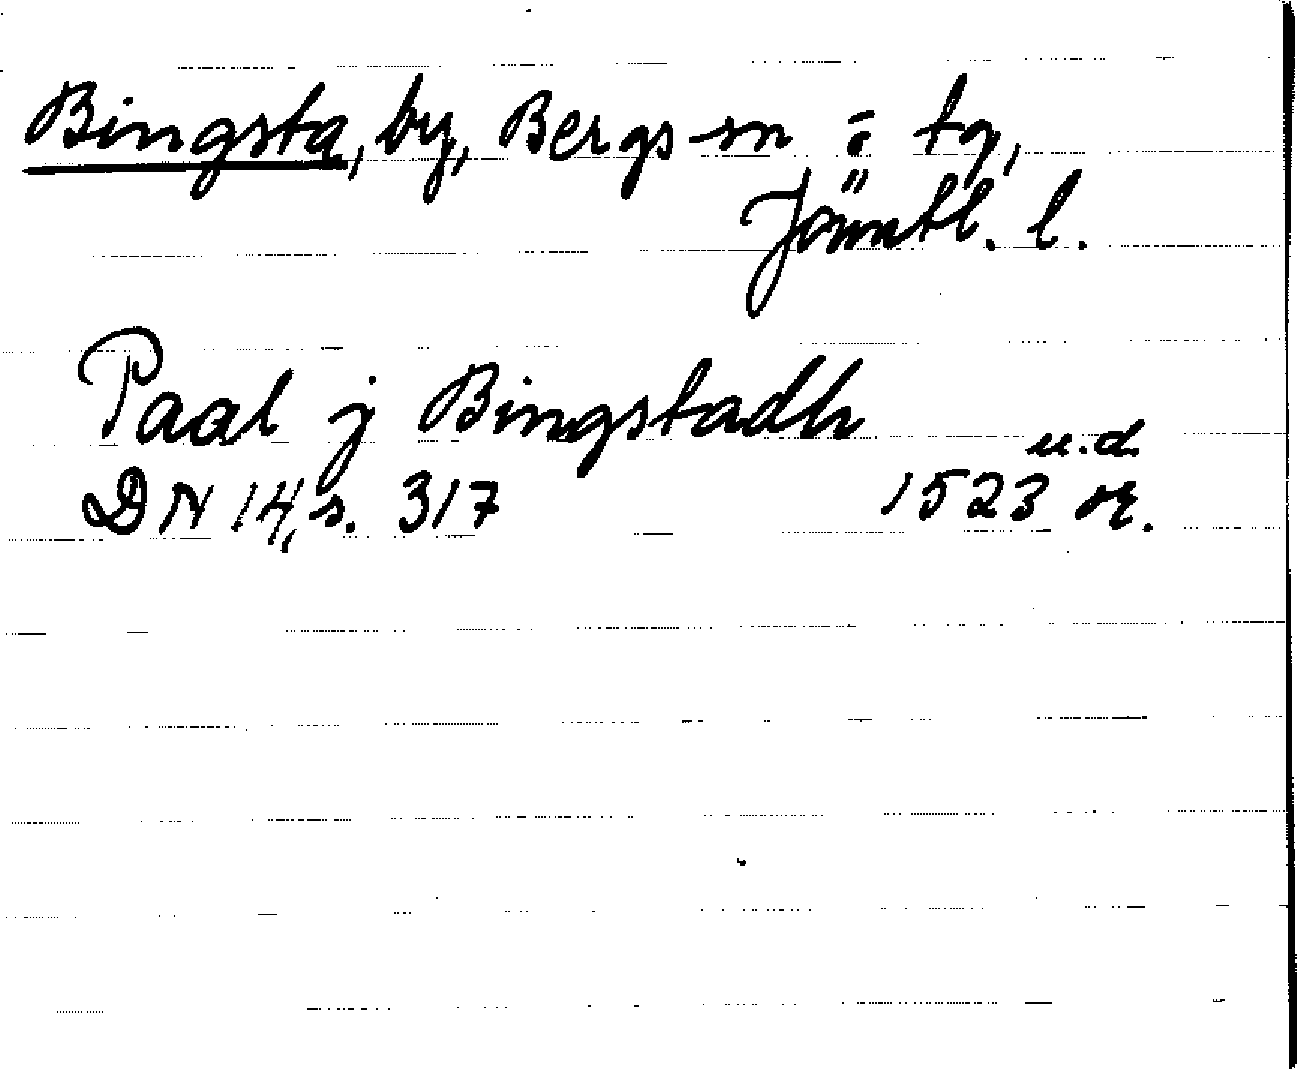 Bingsta, by, Bergs sn o tg,
Jämtl. l.
Paal j Bingstadh
u.d.
DN 14, s. 317 1523 or.